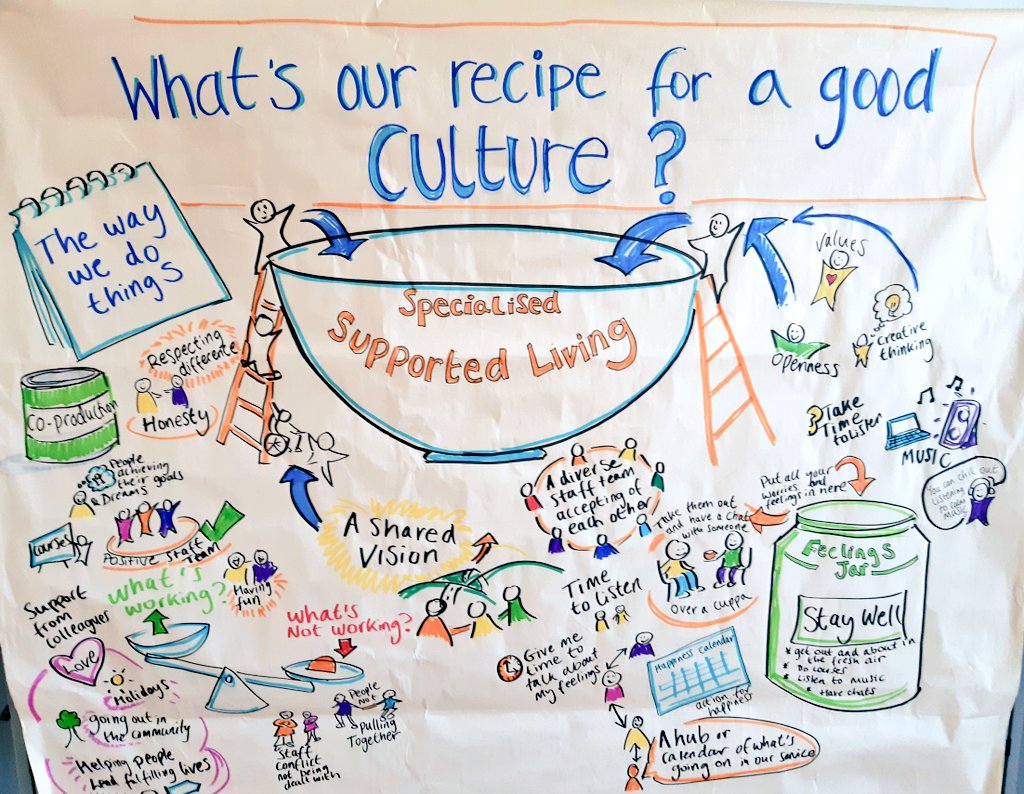 What's our recipe for a good
Culture?
The way
we do
things
Specialised
Supported Living
Values
Openness
Creative
thinking
Respecting
difference
Honesty
Co-production
Take
Time
to listen
MUSIC
You can chill out
listening
to
music
People
achieving
their goals
& Dreams
Courses
Positive Staff
Team
Having
fun
A Shared
Vision
A diverse
staff team
accepting of
each other
Put all your
worries and
feelings in here
Take them out
and have a chat
with someone
Over a cuppa
Feelings
Jar
Stay Well
* get out and about in
the fresh air
* Do courses
* Listen to music
* Have chats
Time
to Listen
Give me
time to
talk about
my feelings
Happiness calendar
action for
happiness
A hub or
calendar of what's
going on in our service
Support
from
colleagues
What's
working?
What's
Not working?
Love
Holidays
going out in
the community
Helping people
lead fulfilling lives
Staff
conflict
not being
dealt with
People
Not
Pulling
Together